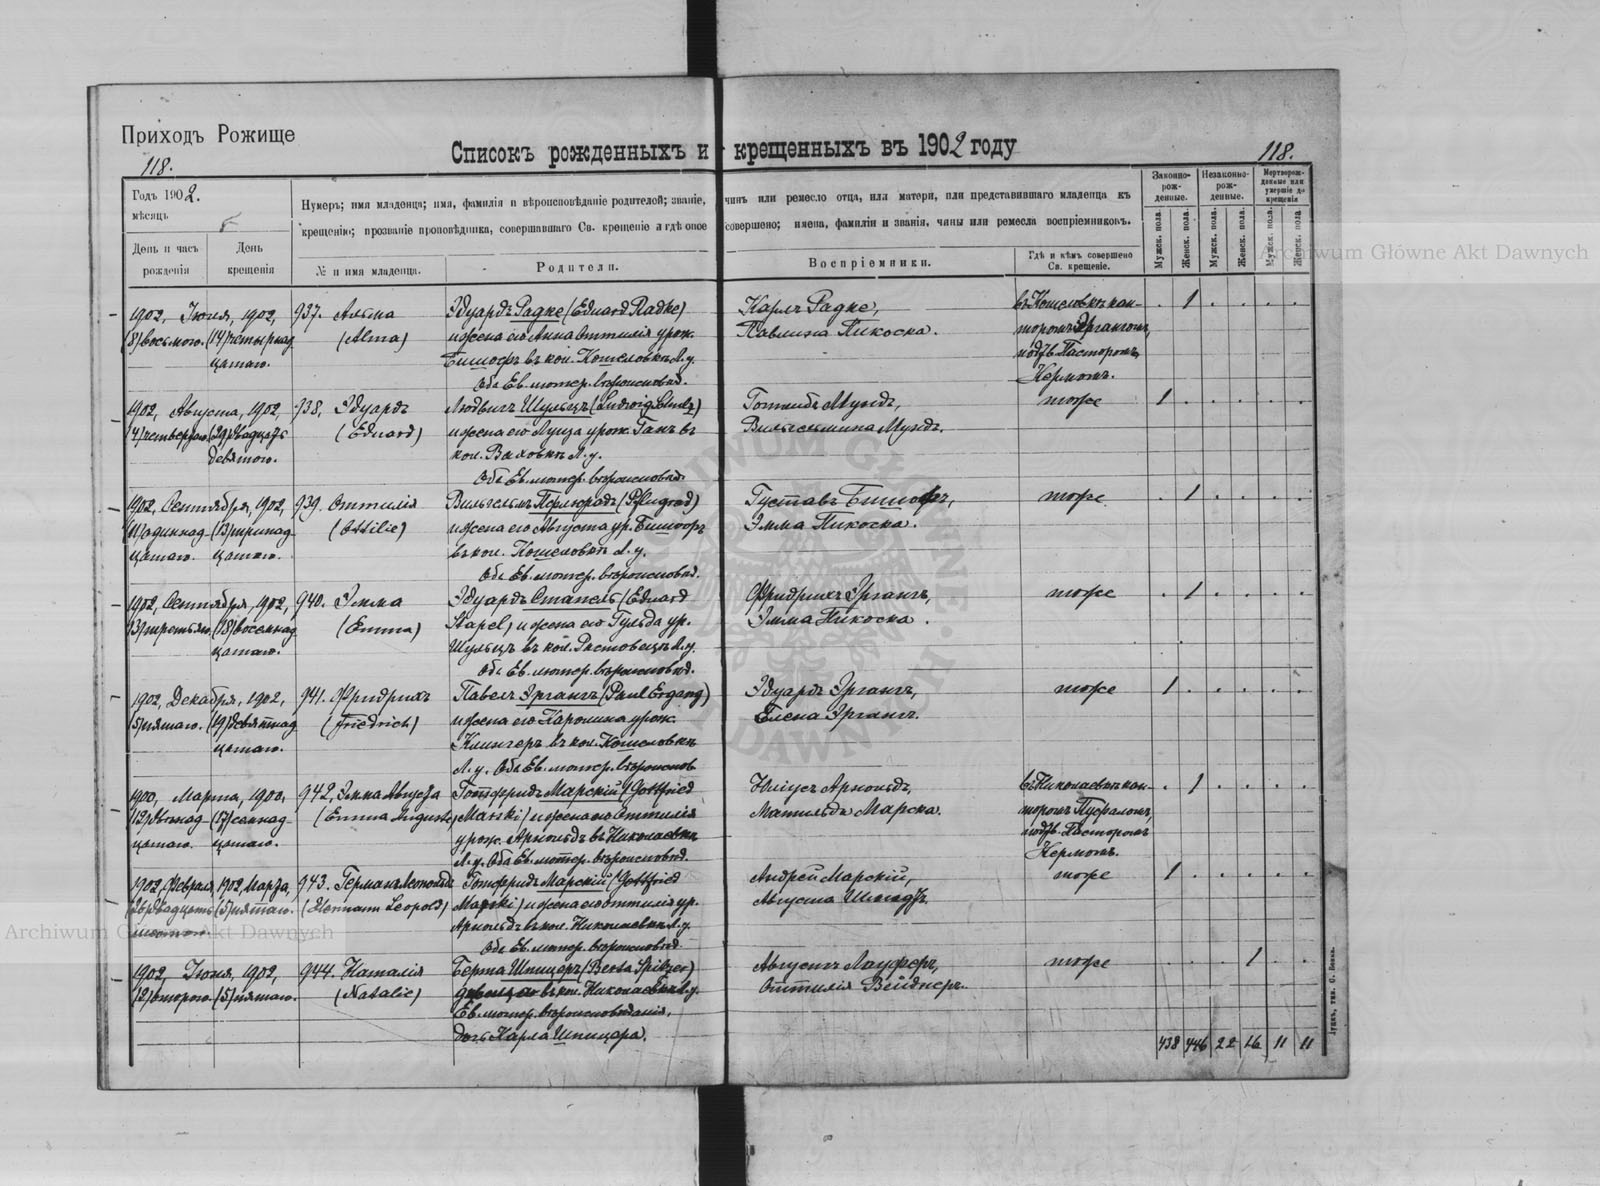 Приходъ Рожище
118.
Списокъ рожденныхъ и крещенныхъ въ 1902 году
118.
Годъ 1902.
мѣсяцъ
День и часъ рожденія
День крещенія
Нумеръ; имя младенца; имя, фамилія и вѣроисповѣданіе родителей; званіе, чинъ или ремесло отца, или матери, или представившаго младенца къ
крещенію; прозваніе проповѣдника, совершавшаго Св. крещеніе и гдѣ оное совершено; имена, фамиліи и званія, чины или ремесла воспріемниковъ.
№ и имя младенца.
Родители.
Воспріемники.
Гдѣ и кѣмъ совершено Св. крещеніе.
Законно-рож-денные.
Незаконно-рож-денные.
Мертворож-денные или умершіе до крещенія
Мужск. пола.
Женск. пола.
Мужск. пола.
Женск. пола.
Мужск. пола.
Женск. пола
Archiwum Główne Akt Dawnych
1902, Іюня, 1902, 937. Альма Эдуардъ Радке (Eduard Radke) Карлъ Радке, въ Кошеловкѣ кан- 1
(8) восьмого. (14) четырнад (Alma) и жена его Анна Оттилія урож. Павлина Пикоска. торомъ Эргангомъ,
цатаго. Бишофъ въ кол. Кошеловкѣ Л. у. подтв. Пасторомъ
Оба Ев. лютер. вѣроисповѣд. Кермомъ.
1902, Августа, 1902, 938. Эдуардъ Людвигъ Шульцъ (Ludwig Schulz) Готлибъ Мундъ, тоже 1
(4) четвертаго. (29) двадцать (Eduard) и жена его Луиза урож. Ганъ въ Вильгельмина Мундъ.
девятого. кол. Л. у.
Оба Ев. лютер. вѣроисповѣд.
1902, Сентября, 1902, 939. Оттилія Вильгельмъ Пфлюградъ (Pflugrad) Густавъ Бишофъ, тоже 1
(11) одиннад (13) тринад (Ottilie) и жена его Августа ур. Бишофъ Эмма Пикоска.
цатаго. цатаго. въ кол. Кошеловкѣ Л. у.
Оба Ев. лютер. вѣроисповѣд.
1902, Сентября, 1902, 940. Эмма Эдуардъ Стапель (Eduard Фридрихъ Эргангъ, тоже 1
(3) третьяго (18) восемнад (Emma) Stapel) и жена его Гульда ур. Эмма Пикоска.
цатаго. Шульцъ въ кол. Л. у.
Оба Ев. лютер. вѣроисповѣд.
1902, Декабря, 1902, 941. Фридрихъ Павелъ Эргангъ (Paul Ergang) Эдуардъ Эргангъ, тоже 1
(5) пятаго. (19) девятнад (Friedrich) и жена его Каролина урож. Елена Эргангъ.
цатаго. Клингеръ въ кол. Кошеловкѣ
Л. у. Оба Ев. лютер. вѣроисповѣ
1900, Марта, 1900, 942, Эмма Августа Готфридъ Марскій (Gottfried Юліусъ Арнольдъ, въ Николаевкѣ кан- 1
(12) двѣнад (17) семнад (Emma Auguste) Marski) и жена его Оттилія Матильда Марска. торомъ
цатаго. цатаго. урож. Арнольдъ въ Николаевкѣ подтв. Пасторомъ
Л. у. Оба Ев. лютер. вѣроисповѣд. Кермомъ.
1902, Февраля, 1902, Марта, 943. Германъ Леопольдъ Готфридъ Марскій (Gottfried Андрей Марскій, тоже 1
(26) двадцать (5) пятаго. (Hermann Leopold) Marski) и жена его Оттилія ур. Августа
шестого. Арнольдъ въ кол. Николаевкѣ Л. у.
Archiwum Główne Akt Dawnych
Оба Ев. лютер. вѣроисповѣд.
1902, Іюня, 1902, 944. Наталія Берта Шпицеръ (Berta Spitzer) Августъ Лауферъ, тоже 1
(2) второго. (5) пятаго. (Natalie) дѣвица въ кол. Николаевкѣ Л. у. Оттилія Вейднеръ.
Ев. лютер. вѣроисповѣданія,
дочь Карла Шпицера.
438 446 22 16 11 11